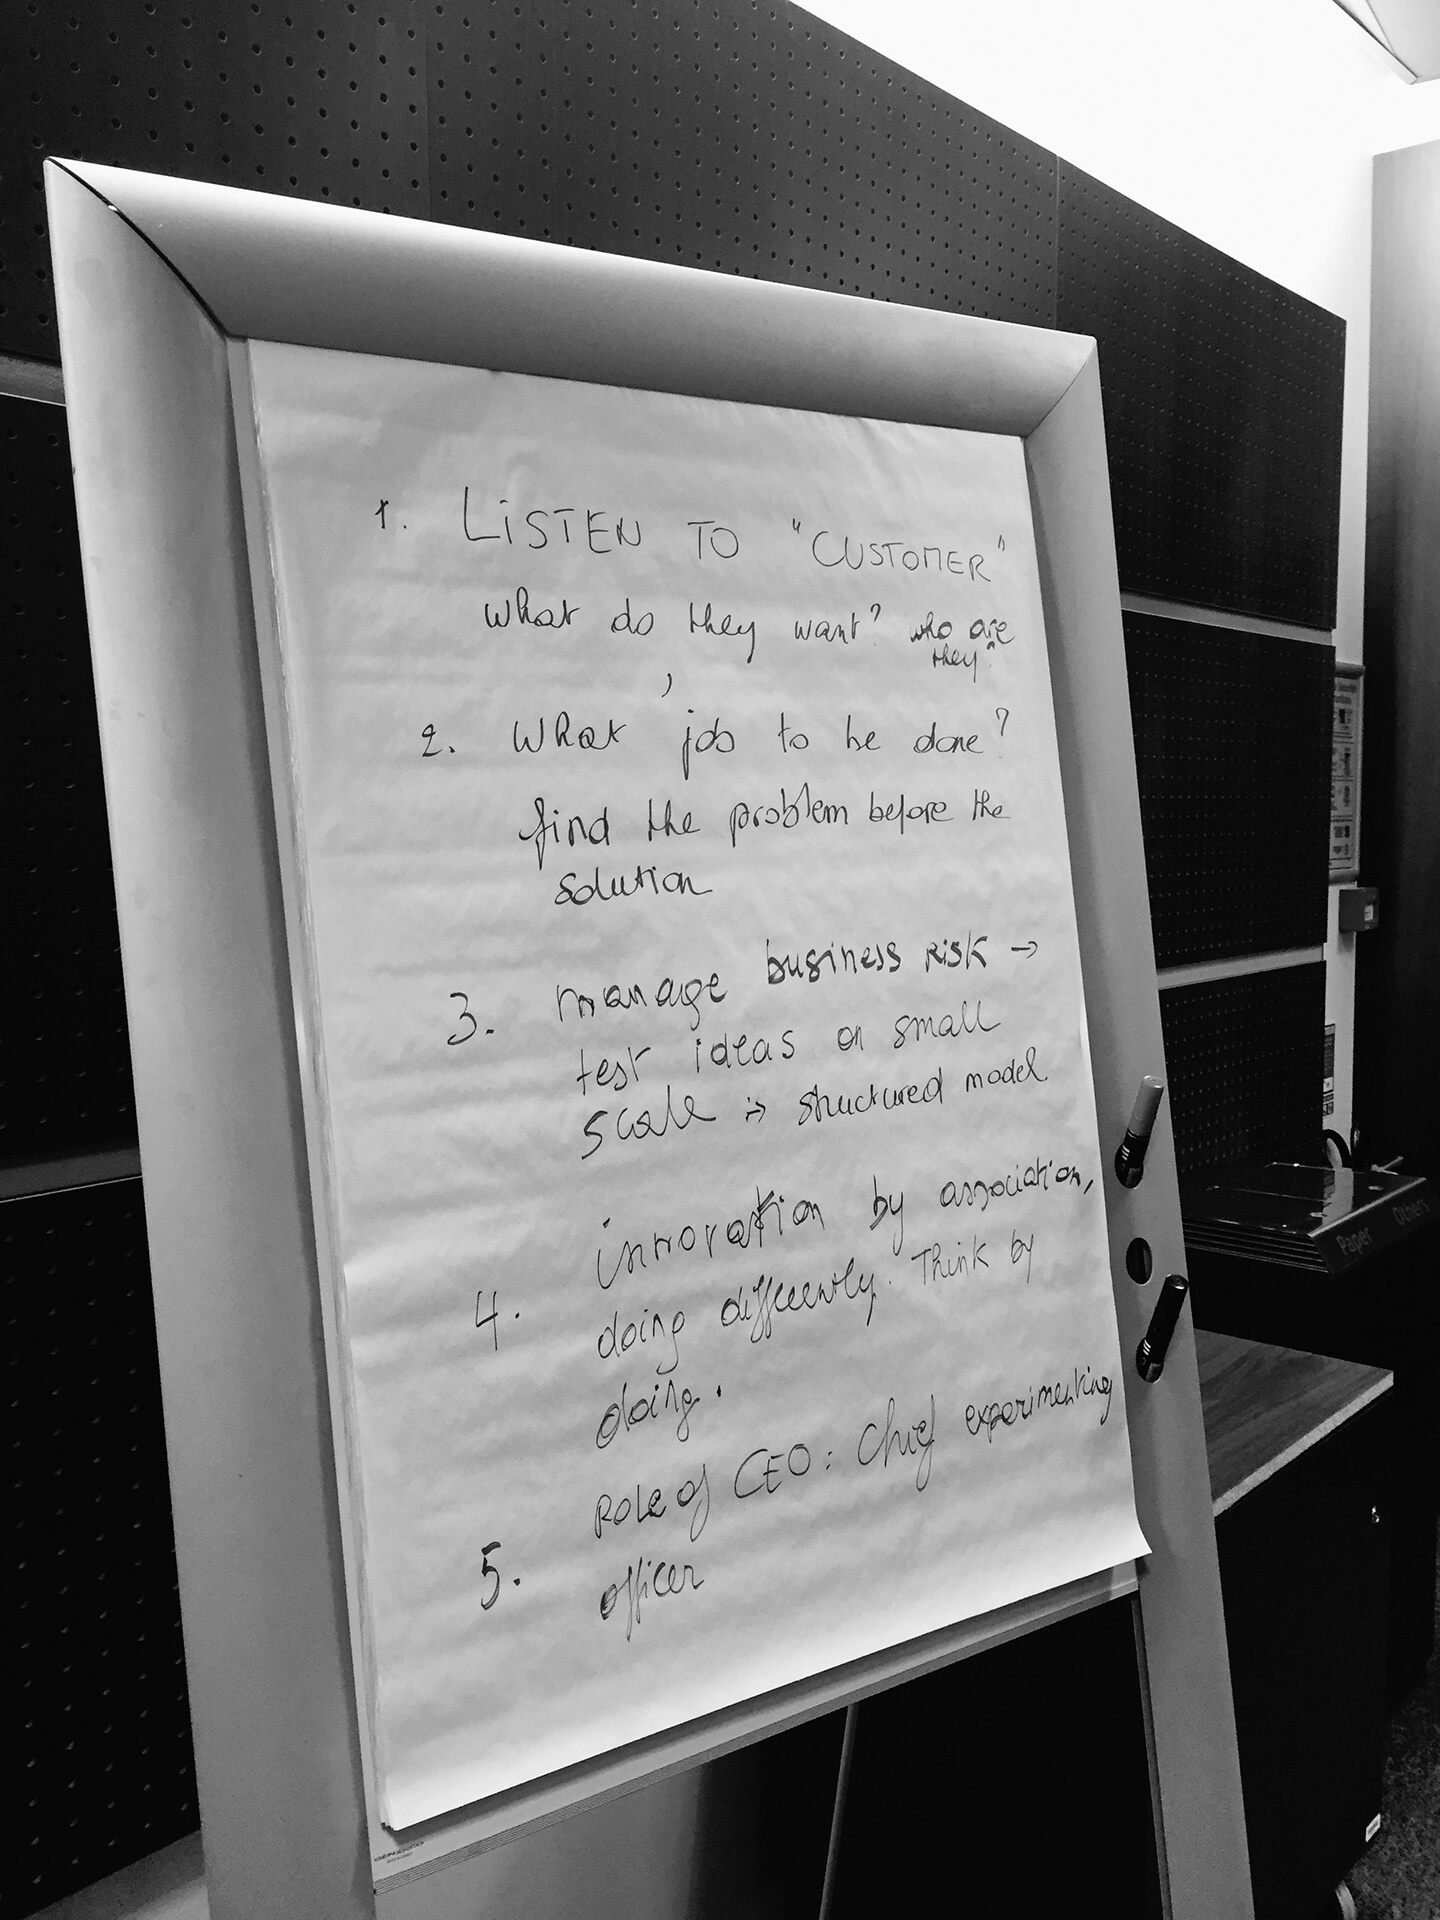 1. LiSTEN TO "CUSTOMER"
what do they want? who are
they?
2. What job to be done?
find the problem before the
solution
3. manage business risk →
test ideas on small
scale → structured model
4. innovation by association,
doing differently. Think by
doing.
5. Role of CEO: Chief experimenting
officer
Paper
Others